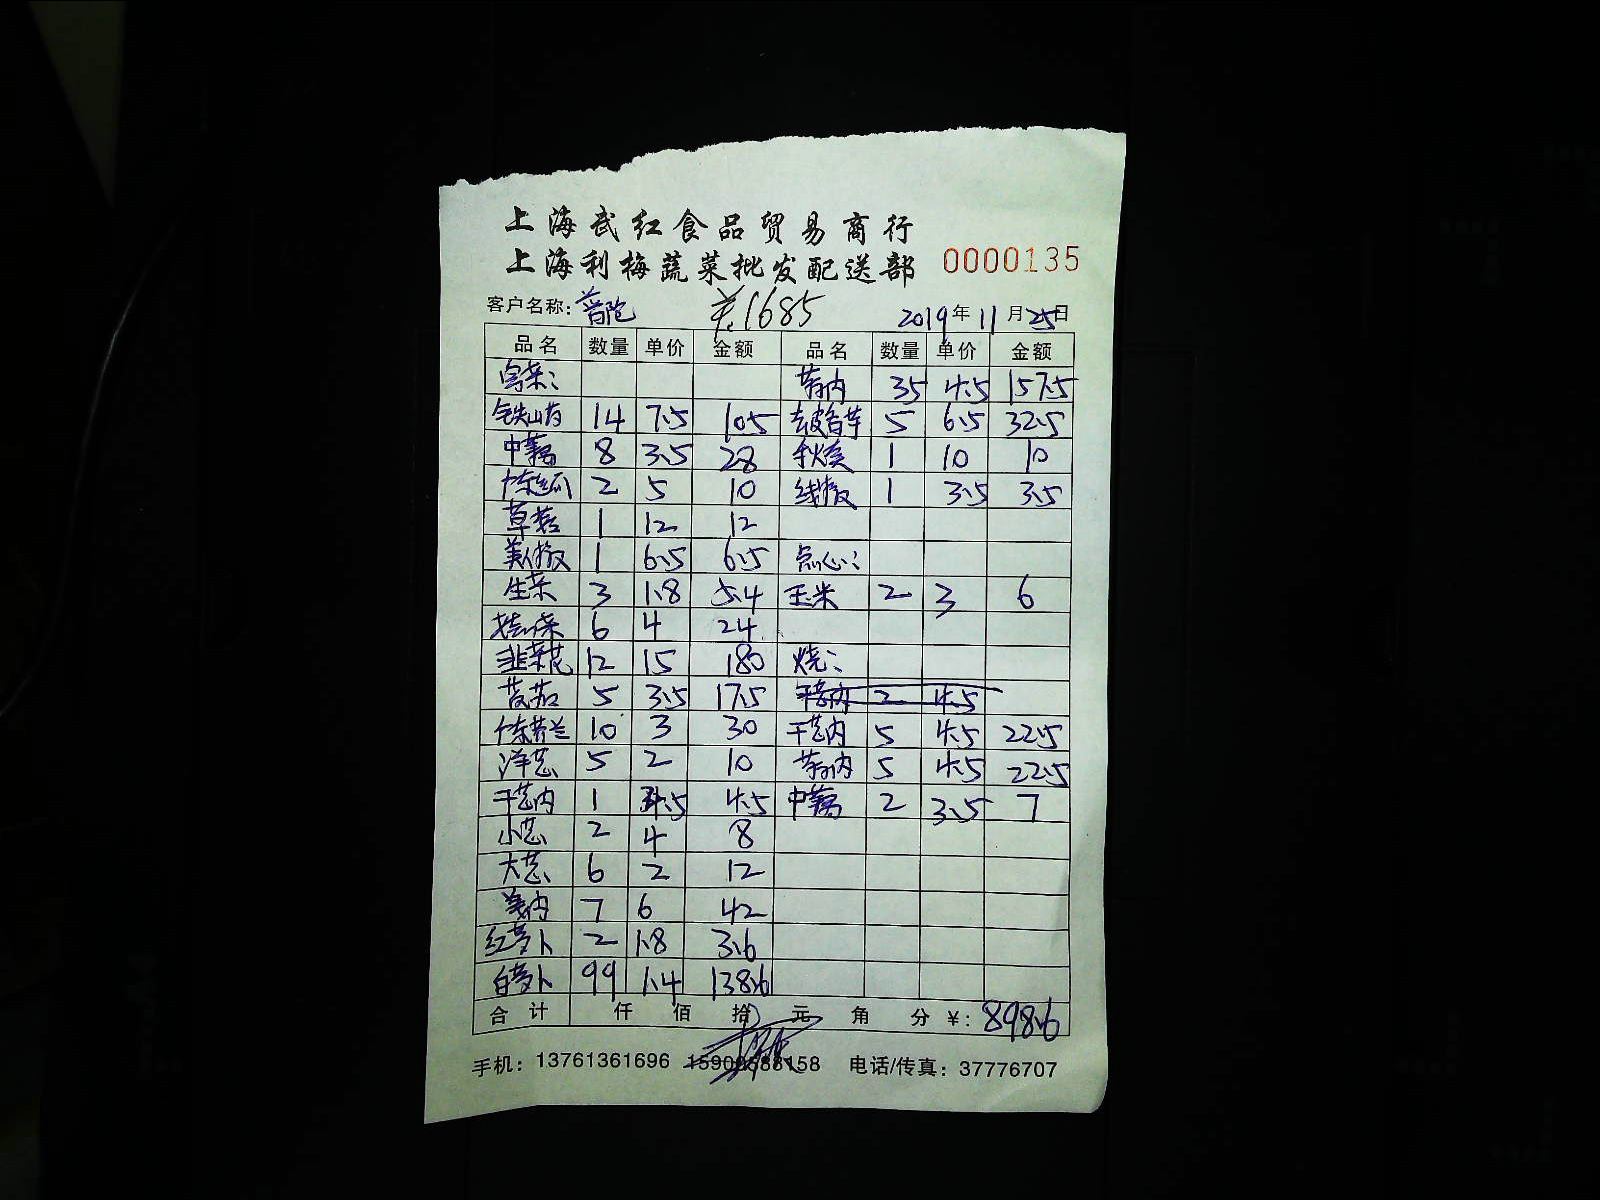 上海武红食品贸易商行
上海利梅蔬菜批发配送部 0000135
客户名称: 普陀 1685 2019年11月25日
品名 数量 单价 金额 品名 数量 单价 金额
35 4.5 157.5
铁山药 14 7.5 105 去皮香芋 5 6.5 32.5
中藕 8 3.5 28 秋葵 1 10 10
2 5 10 线椒 1 3.5 3.5
草菇 1 12 12
美人椒 1 6.5 6.5 点心:
生菜 3 1.8 5.4 玉米 2 3 6
6 4 24
韭菜花 12 15 180 烧:
5 3.5 17.5 2 4.5
10 3 30 5 4.5 22.5
洋芯 5 2 10 5 4.5 22.5
1 4.5 4.5 中藕 2 3.5 7
小芯 2 4 8
大芯 6 2 12
7 6 42
红萝卜 2 1.8 3.6
白萝卜 99 1.4 138.6
合计 仟 佰 拾 元 角 分 ¥: 898.6
手机: 13761361696 15900588158 电话/传真: 37776707